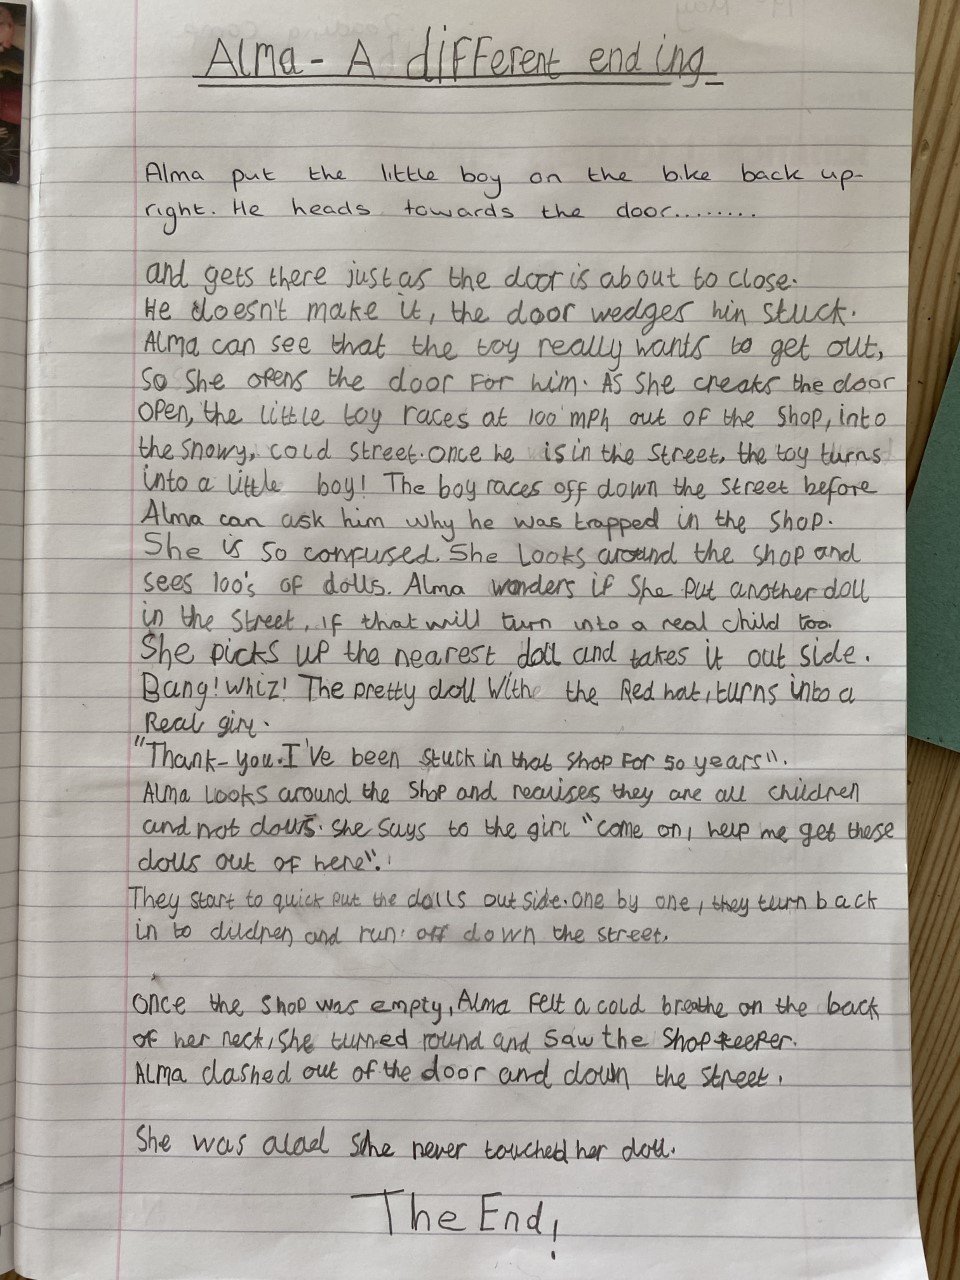 Alma - A different ending
Alma put the little boy on the bike back up-
right. He heads towards the door........
and gets there just as the door is about to close.
He doesn't make it, the door wedges hin stuck.
Alma can see that the toy really wants to get out,
So she opens the door for him. As she creaks the door
open, the little toy races at 100 mph out of the shop, into
the snowy, cold street. once he is in the street, the toy turns
into a little boy! The boy races off down the street before
Alma can ask him why he was trapped in the shop.
She is so confused. She looks around the shop and
sees 100's of dolls. Alma wonders if she put another doll
in the street, if that will turn into a real child too.
She picks up the nearest doll and takes it out side.
Bang! Whiz! The pretty doll with the Red hat, turns into a
Real girl.
"Thank-you. I've been stuck in that shop for 50 years".
Alma looks around the shop and realises they are all children
and not dolls. she says to the girl "come on, help me get these
dolls out of here".
They start to quick put the dolls out side. one by one, they turn back
in to children and run off down the street.
Once the shop was empty, Alma felt a cold breathe on the back
of her neck, she turned round and saw the shop keeper.
Alma dashed out of the door and down the street.
She was glad she never touched her doll.
The End!